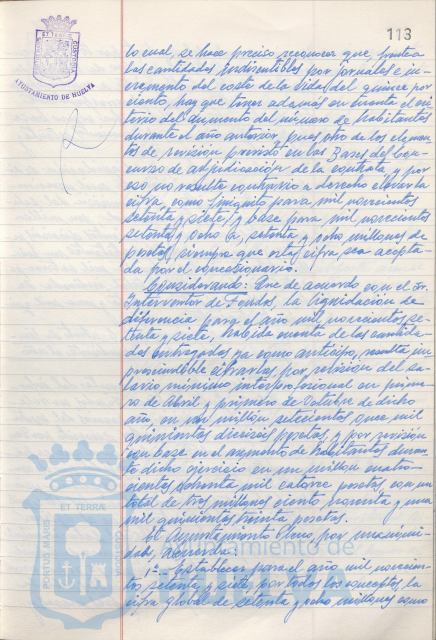 113
AYUNTAMIENTO DE HUELVA
lo cual, se hace preciso reconocer que frente a
las cantidades indiscutibles por jornales e in-
cremento del costo de la vida del quince por
ciento, hay que tener además en cuenta el cri-
terio del aumento del número de habitantes
durante el año anterior, pues otro de los elemen-
tos de revisión previsto en las Bases del Con-
curso de adjudicación de la contrata y por
eso no resulta contrario a derecho elevar la
cifra, como finiquito para mil novecientos
setenta y siete, y base para mil novecientos
setenta y ocho a, setenta y ocho millones de
pesetas, siempre que esta cifra sea acepta-
da por el concesionario.
Considerando: Que de acuerdo con el Sr.
Interventor de Fondos, la liquidación de
diferencia para el año mil novecientos se-
tenta y siete, habida cuenta de las cantida-
des entregadas ya como anticipo, resulta im-
prescindible cifrarlas por revisión del sa-
lario mínimo interprofesional en prime-
ro de Abril y primero de Octubre de dicho
año, en un millón setecientas once mil
quinientas dieciseis pesetas, y por revisión
con base en el aumento de habitantes duran-
te dicho ejercicio en un millón cuatro-
cientas ochenta mil catorce pesetas con un
total de tres millones ciento noventa y una
mil quinientas treinta pesetas.
El Ayuntamiento Pleno, por unanimi-
dad, acuerda:
1º.- Establecer para el año mil novecien-
tos setenta y siete, por todos los conceptos, la
cifra global de setenta y ocho millones como
ET TERRA
PORTUS MARIS
CUSTODIA
Ayuntamiento de